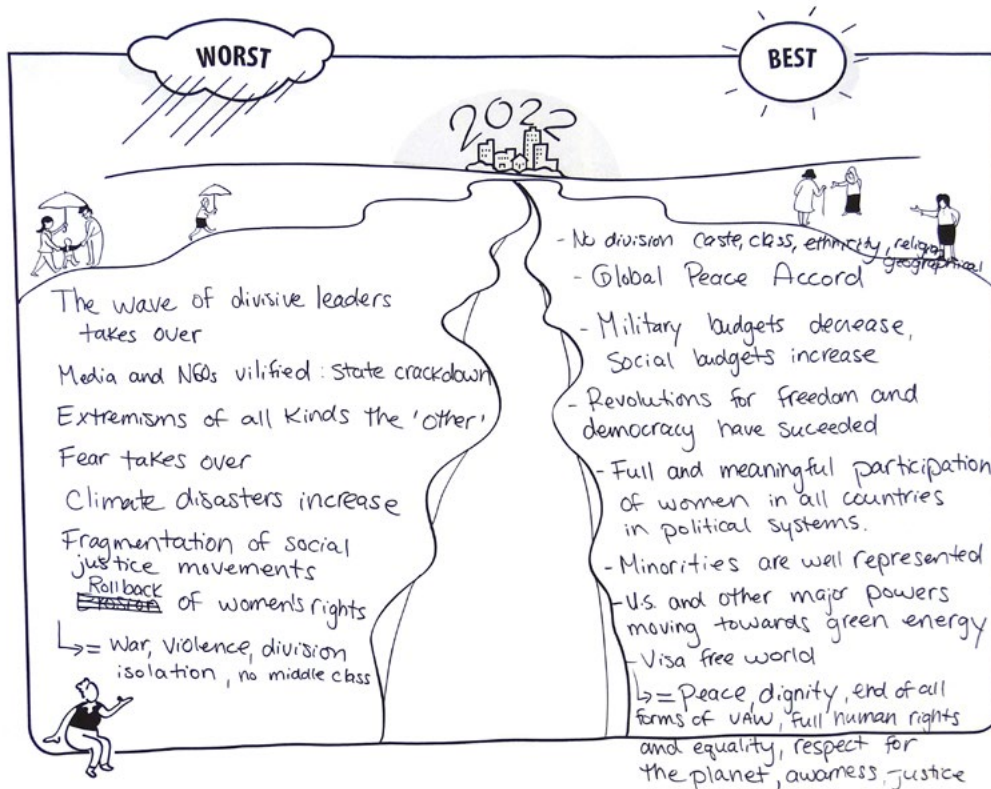 WORST
BEST
2022
The wave of divisive leaders
takes over
Media and NGOs vilified : State crackdown
Extremisms of all kinds the 'other'
Fear takes over
Climate disasters increase
Fragmentation of social
justice movements
Rollback
Erosion of women's rights
↳= War, violence, division
isolation, no middle class
- No division caste, class, ethnicity, religion,
geographical
- Global Peace Accord
- Military budgets decrease,
social budgets increase
- Revolutions for freedom and
democracy have suceeded
- Full and meaningful participation
of women in all countries
in political systems.
- Minorities are well represented
- U.S. and other major powers
moving towards green energy
- Visa free world
↳= Peace, dignity, end of all
forms of VAW, full human rights
and equality, respect for
the planet, awarness, justice